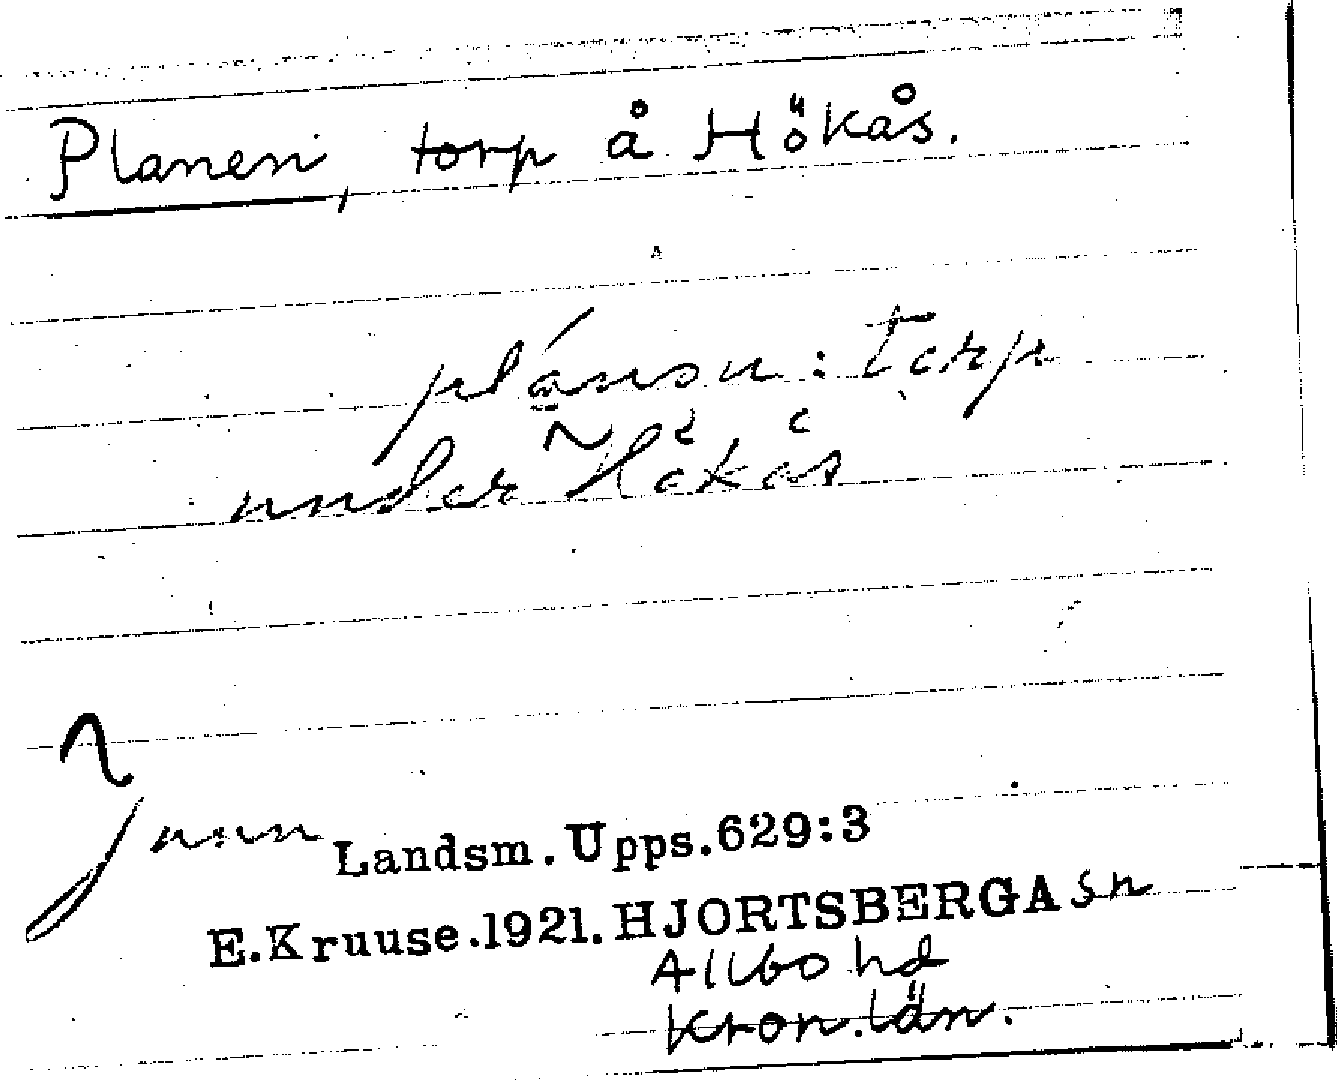 Planen, torp å Hökås.
plánən : torp
under Hökås
Landsm. Upps. 629:3
E. Kruuse. 1921. HJORTSBERGA sn
Allbo hd
Kron. län.